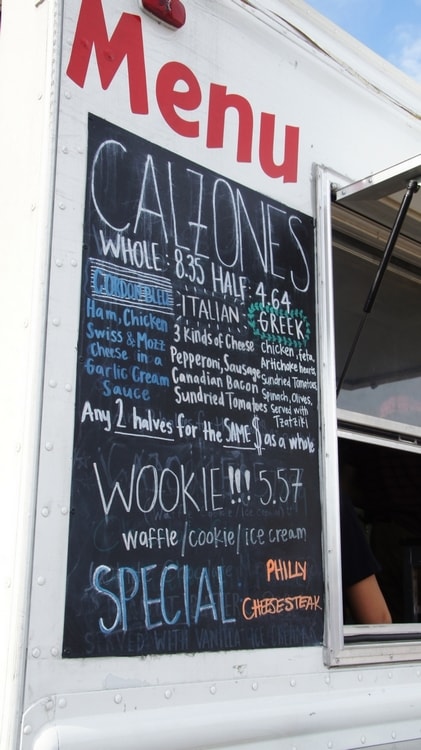 Menu
CALZONES
WHOLE: 8.35 HALF: 4.64
CORDON BLEU
Ham, Chicken
Swiss & Mozz
Cheese in a
Garlic Cream
Sauce
ITALIAN
3 Kinds of Cheese
Pepperoni, Sausage
Canadian Bacon
Sundried Tomatoes
GREEK
Chicken, feta,
Artichoke hearts,
Sundried Tomatoes,
Spinach, Olives,
Served with
Tzatziki
Any 2 halves for the SAME $ as a whole
WOOKIE!!! 5.57
waffle/cookie/ice cream
SPECIAL
PHILLY
CHEESESTEAK